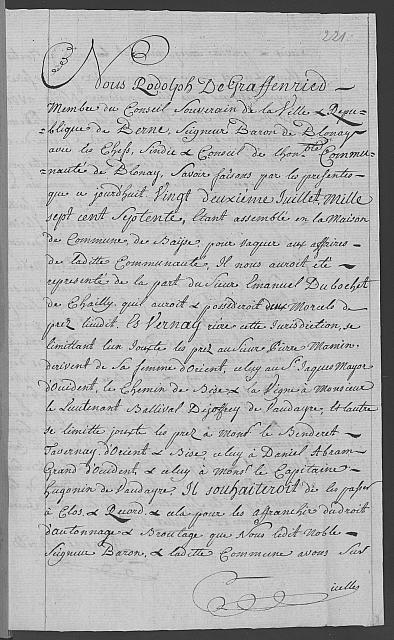 221.
Nous Rodolph De Graffenried
Membre du Conseil Souverain de la Ville & Répu-
blique de Berne, Seigneur Baron de Blonay
avec les Chefs, Sindic & Conseil de l'hon.ble Commu-
nauté de Blonay, Savoir faisons par les presentes
que ce jourd'huit Vingt deuxième Juillet, Mille
sept cent septente, Etant assemblé en la Maison
de Commune, de Baise, pour vaquer aux affaires
de laditte Communauté, Il nous auroit été
representé de la part du Sieur Emanuel Dubochet
de Chailly, qui auroit & possederoit deux Morcels de
prez lieudit, Es Vernay rière cette Jurisdiction, se
limittant l'un Jouxte les prez au Sieur Pierre Mamin
derivent de sa femme d'Orient, celuy au Sr. Jaques Mayor
d'Occident, le Chemin de Bise & la Vigne à Monsieur
le Lieutenant Ballival Dejoffrey de Vaudayre, Et l'autre
se limitte jouxte les prez à Mons.r le Banderet
Tavernay, d'Orient & Bise, celuy à Daniel Abram
Grand d'Occident, & celuy à Mons.r le Capitaine
Hugonin de Vaudayre, Il souhaiteroit de les passer
à Clos, & Record, & cela pour les affranchir du droit
d'autonnage & Broutage que Nous ledit Noble
Seigneur Baron, & laditte Commune avons sur
icelles